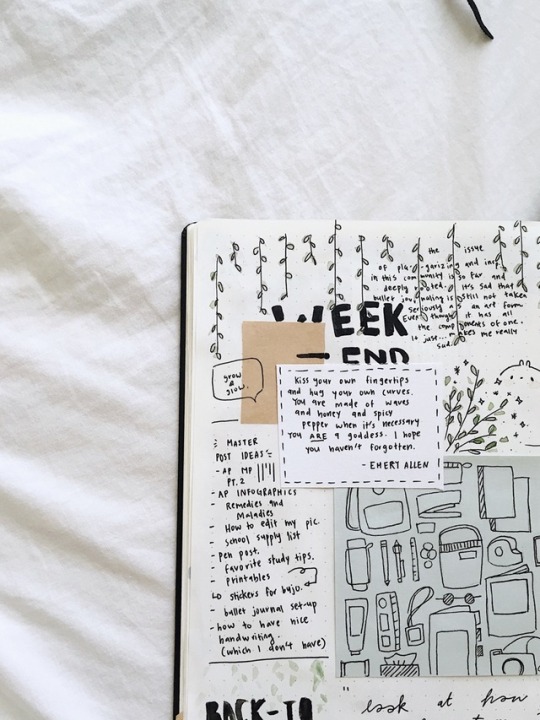 the issue
of plag-garizing and ins
in this community is so far and
deeply rooted. It's sad that
bullet journaling is still not taken
seriously as an art form
Even though it has all
the components of one.
so just... makes me really
sad.
WEEK
- END
grow
&
glow.
Kiss your own fingertips
and hug your own curves.
You are made of waves
and honey and spicy
pepper when it's necessary
You ARE a goddess. I hope
you haven't forgotten.
- EMERY ALLEN
MASTER
POST IDEAS
- AP MP
PT. 2
- AP INFOGRAPHICS
- Remedies and
Maladies
- How to edit my pic.
- school supply list
- Pen post.
- favorite study tips.
- printables
↳ stickers for bujo.
- bullet journal set-up
- how to have nice
handwriting.
(which I don't have)
BACK-TO
" look at how